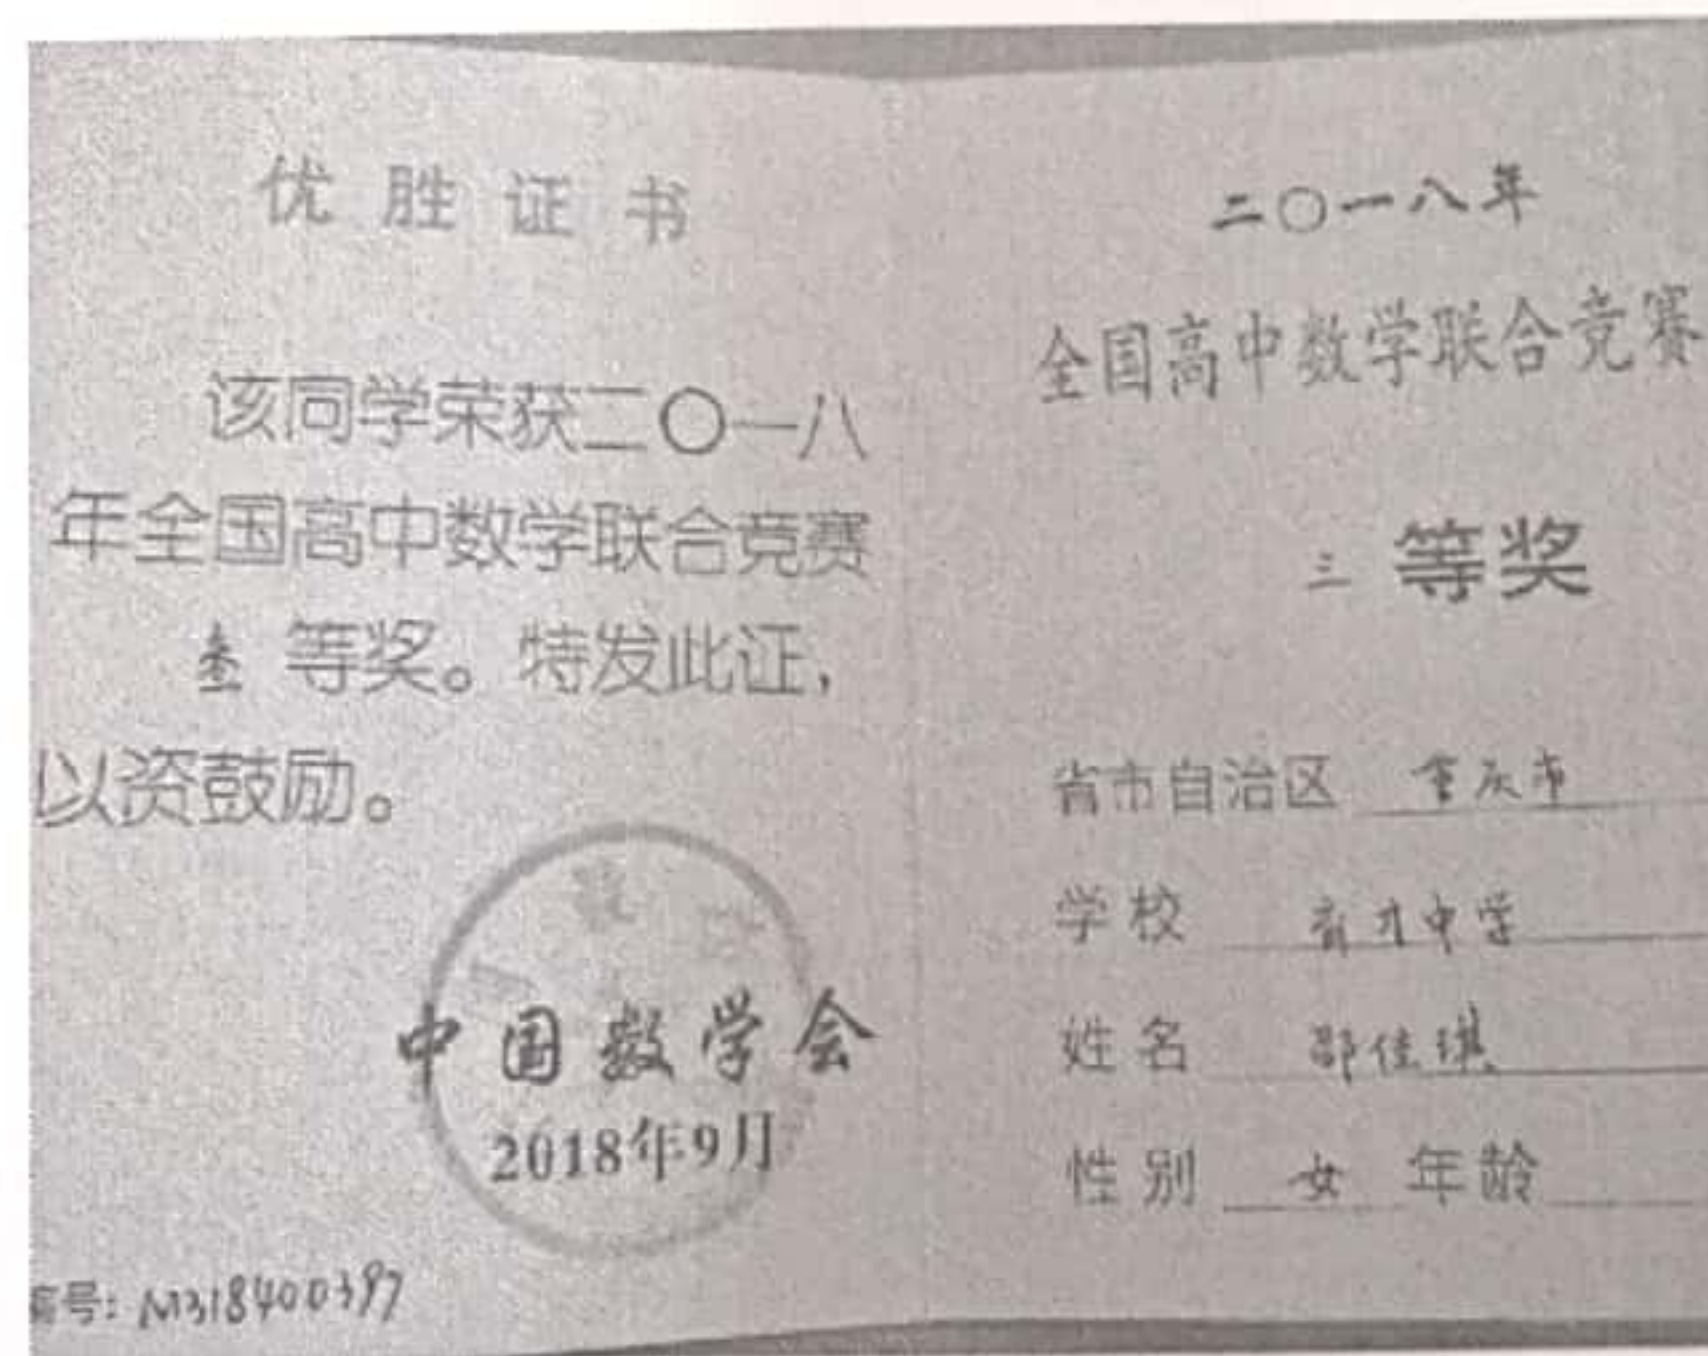 优胜证书
该同学荣获二〇一八
年全国高中数学联合竞赛
叁 等奖。特发此证，
以资鼓励。
中国数学会
2018年9月
编号: M318400397
二〇一八年
全国高中数学联合竞赛
三 等奖
省市自治区 重庆市
学校 育才中学
姓名 邵佳琪
性别 女 年龄